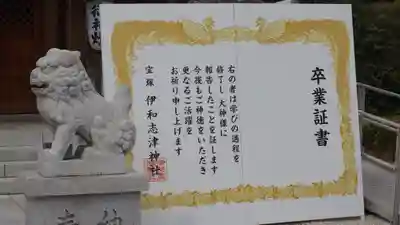 卒業証書
右の者は学びの過程を
修了し 大神様に
報告したことを証します
今後もご神徳をいただき
更なるご活躍を
お祈り申し上げます
宝塚 伊和志津神社
奉納